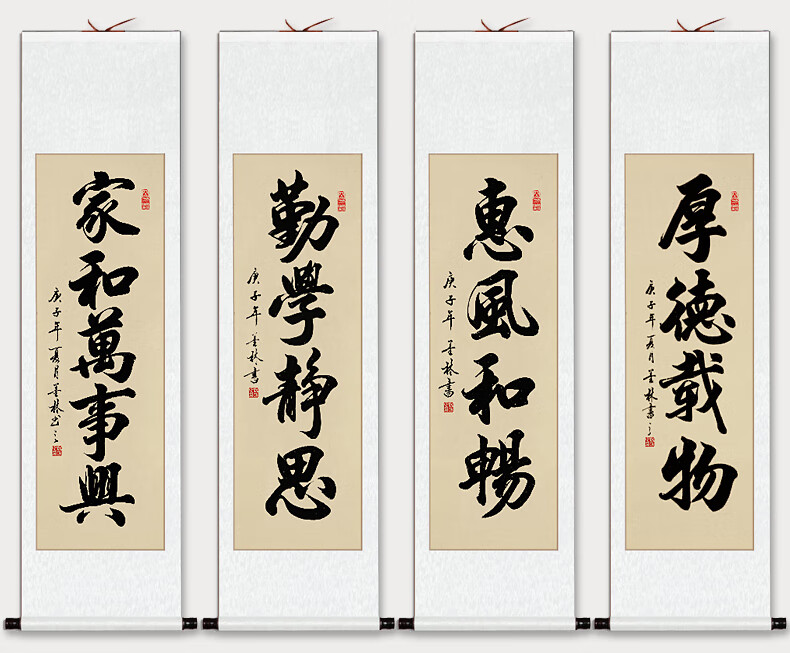 家和萬事興
庚子年夏月墨林書
勤學静思
庚子年墨林書
惠風和暢
庚子年墨林書
厚德載物
庚子年夏月墨林書